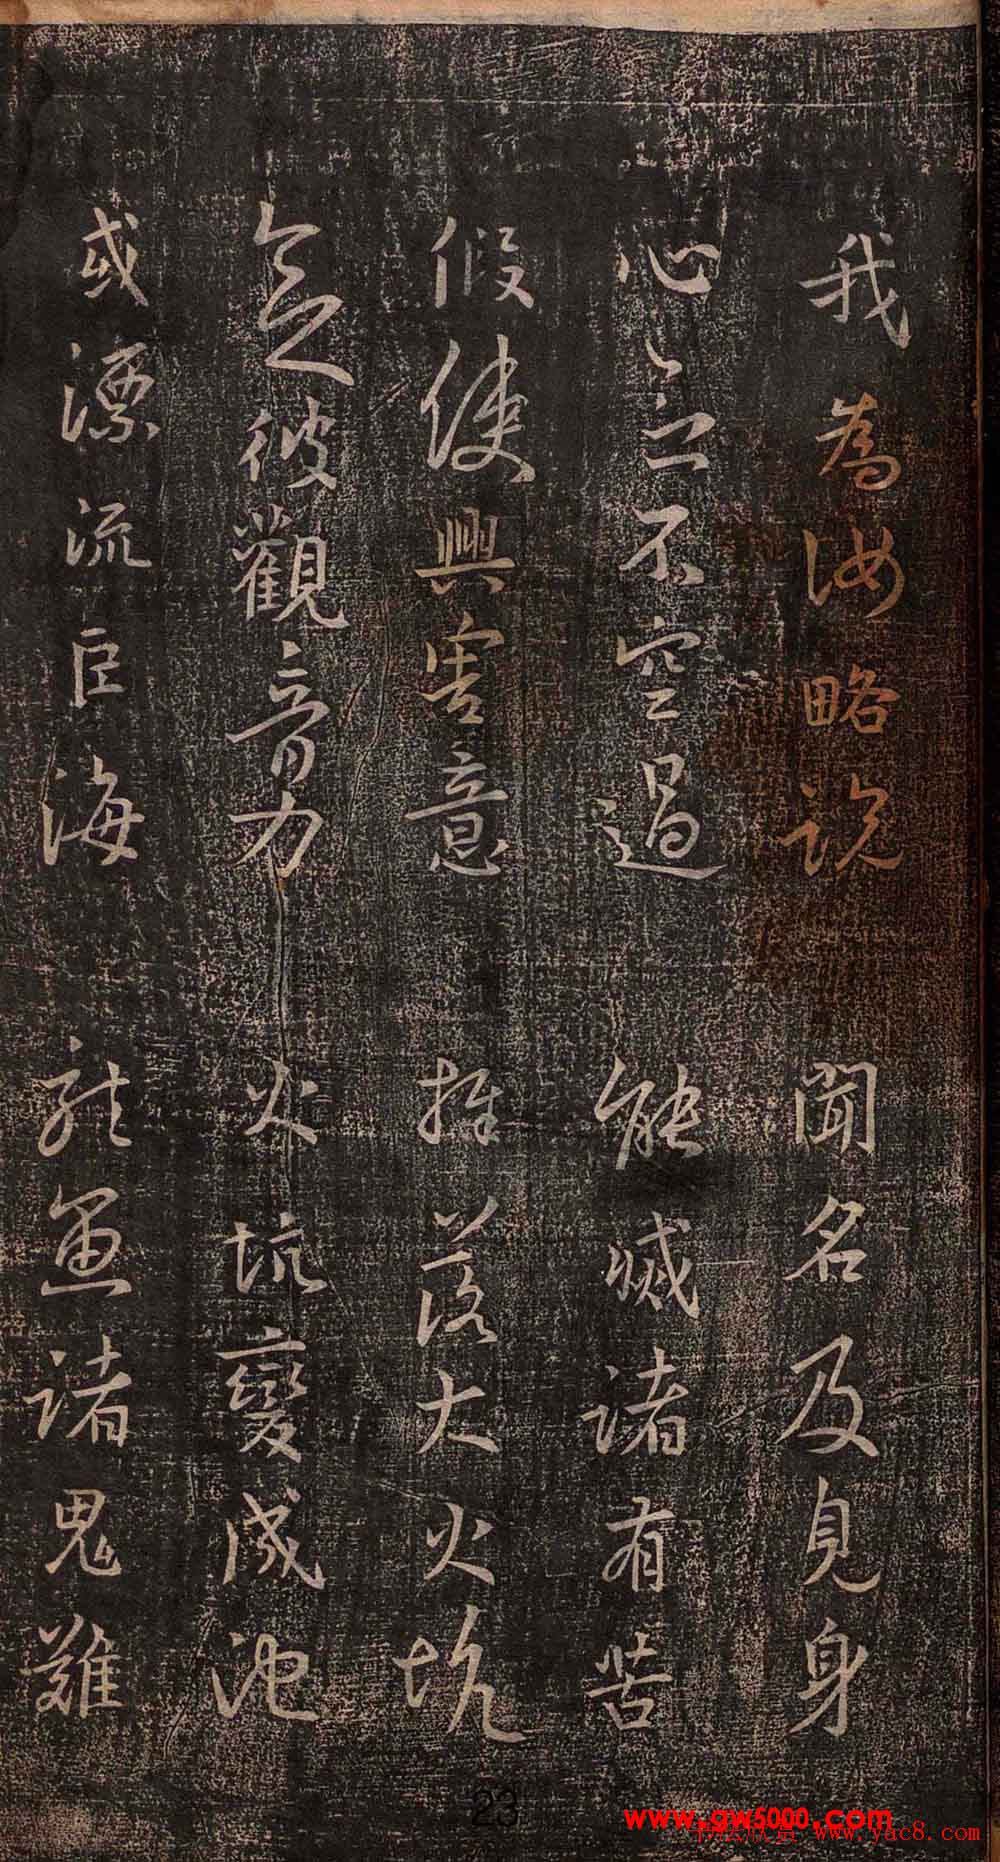 我為汝略說 聞名及見身
心念不空過 能滅諸有苦
假使興害意 推落大火坑
念彼觀音力 火坑變成池
或漂流巨海 龍魚諸鬼難
23
www.gw5000.com
书法欣赏 www.yac8.com